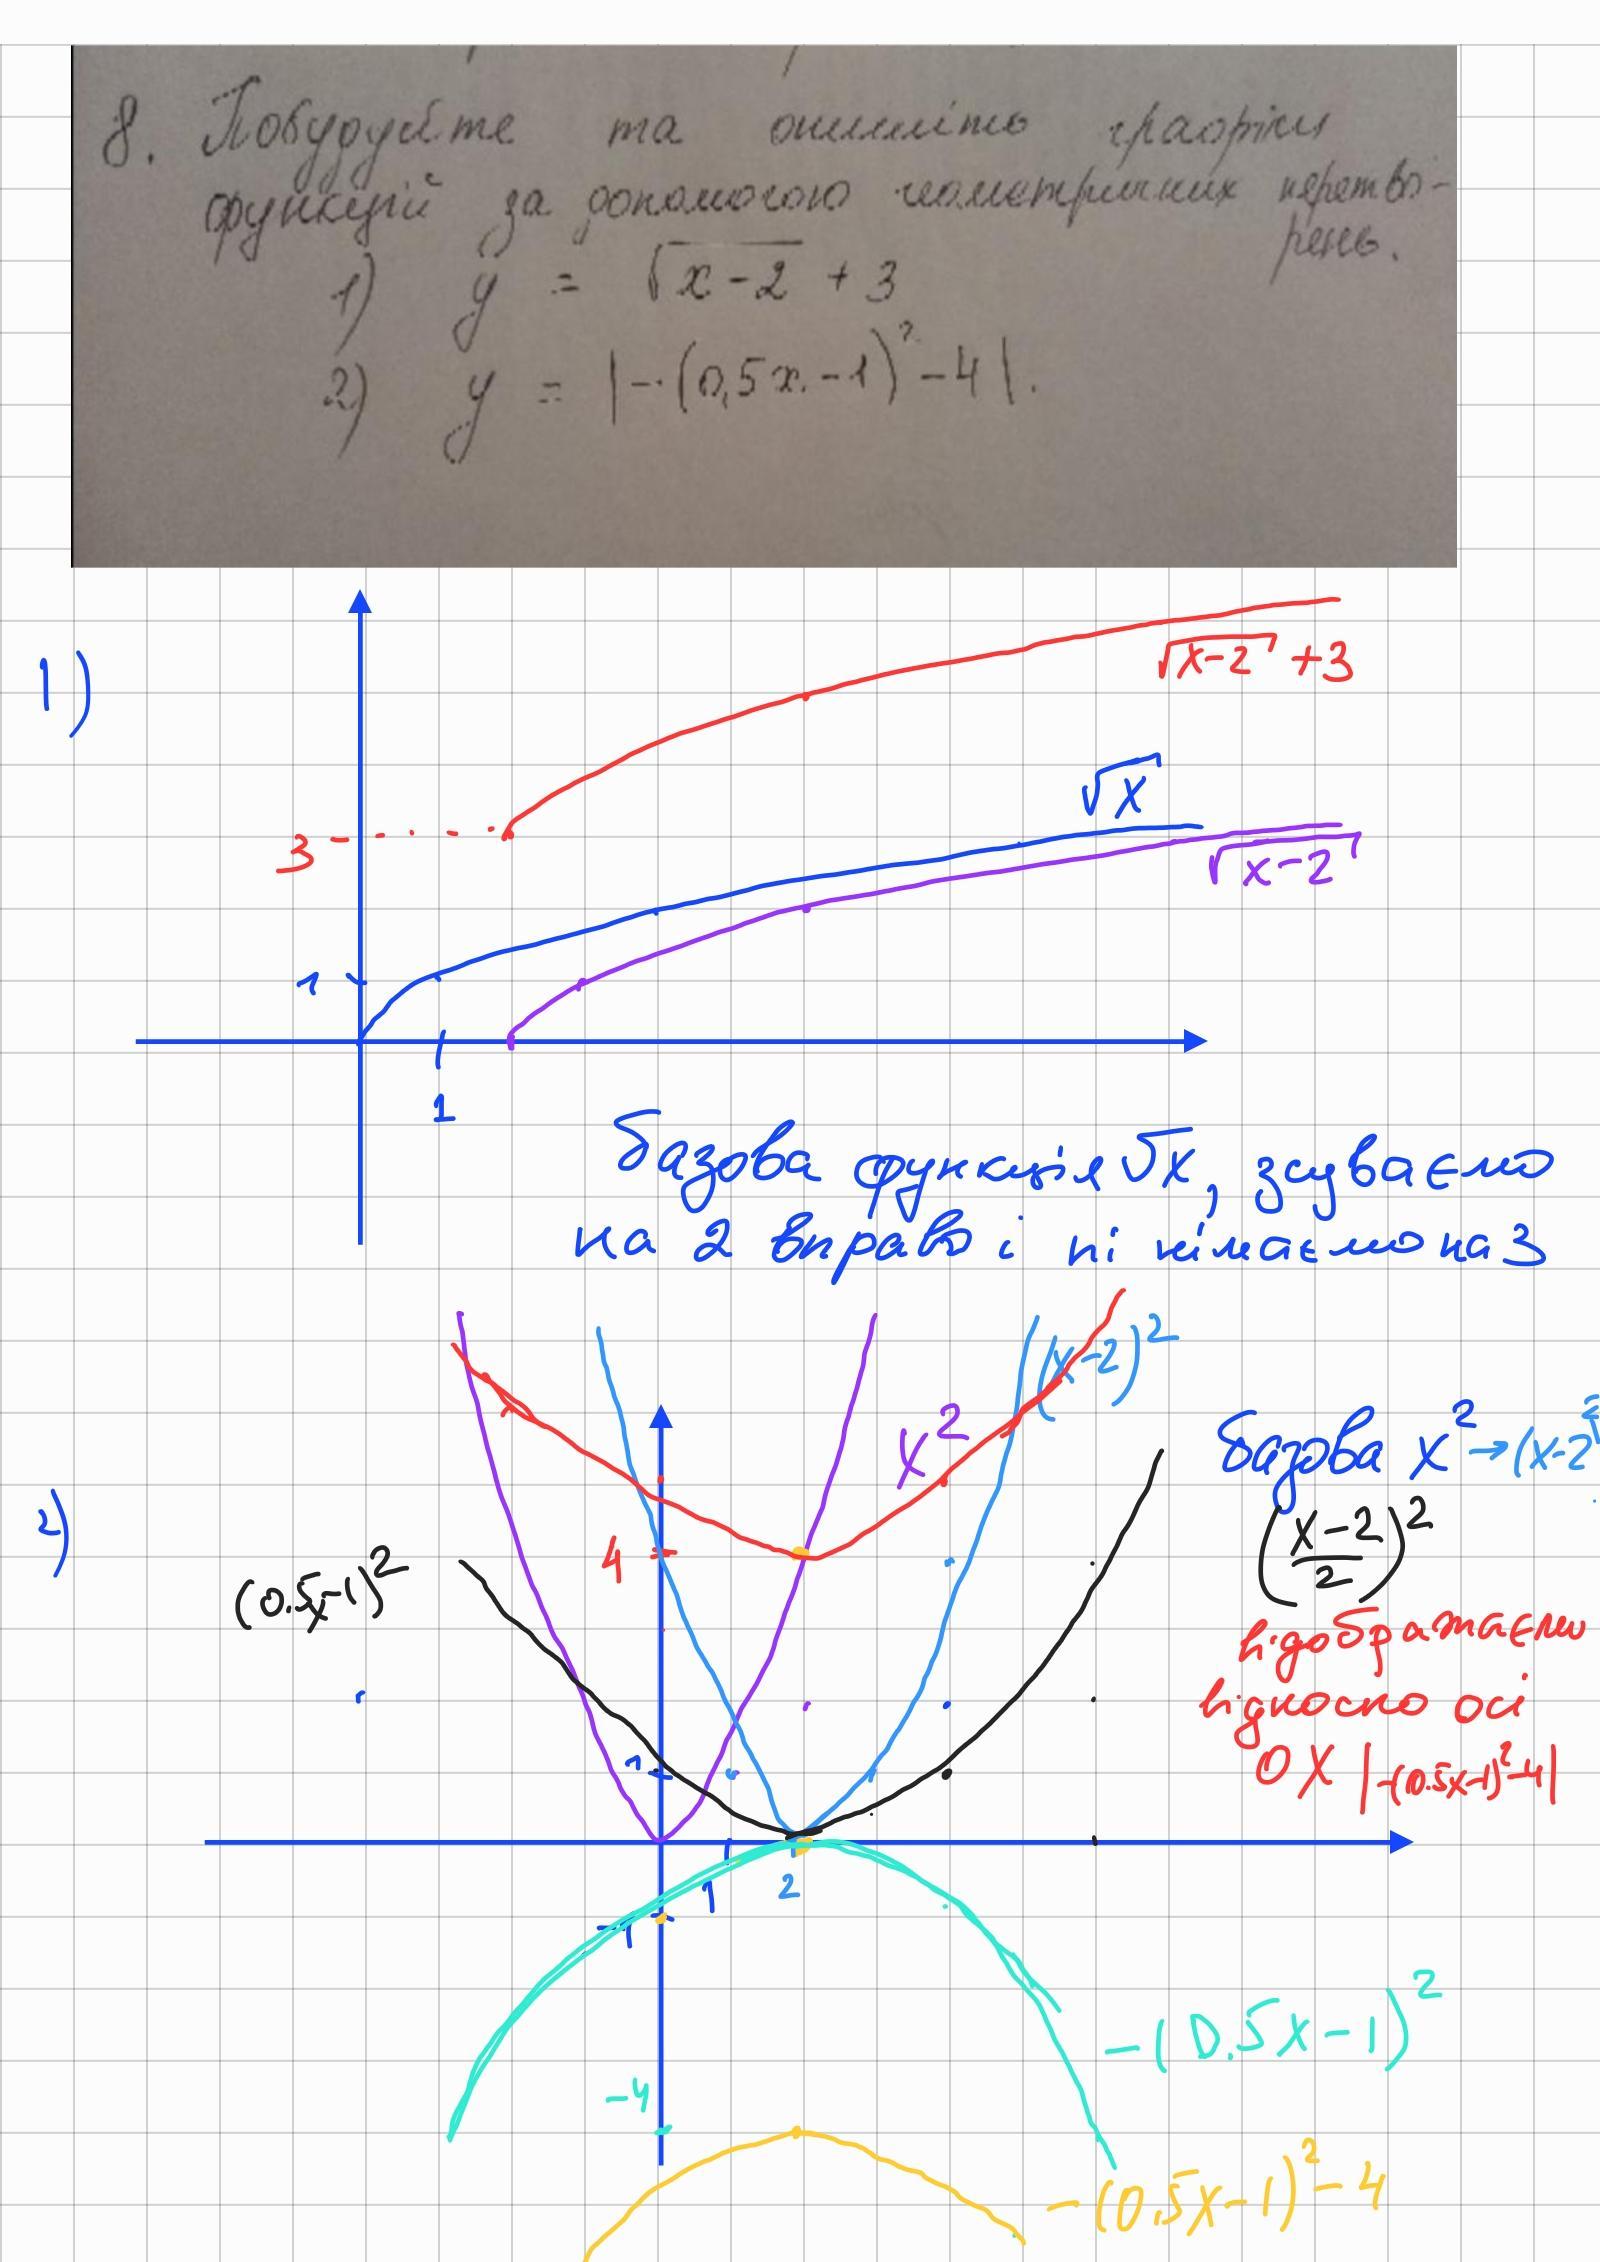 8. Побудуйте та опишіть графіки
функцій за допомогою геометричних перетво-
рень.
1) y = √x-2 + 3
2) y = |-(0,5x-1)²-4|.
1)
√x-2 +3
√x
√x-2
3
1
1
базова функція √x, зсуваємо
на 2 вправо і піднімаємо на 3
(x-2)²
x²
базова x² → (x-2)²
2)
(x-2/2)²
4
(0.5x-1)²
відображаємо
відносно осі
OX |-(0.5x-1)²-4|
1
1
2
-1
-(0.5x-1)²
-4
-(0.5x-1)²-4